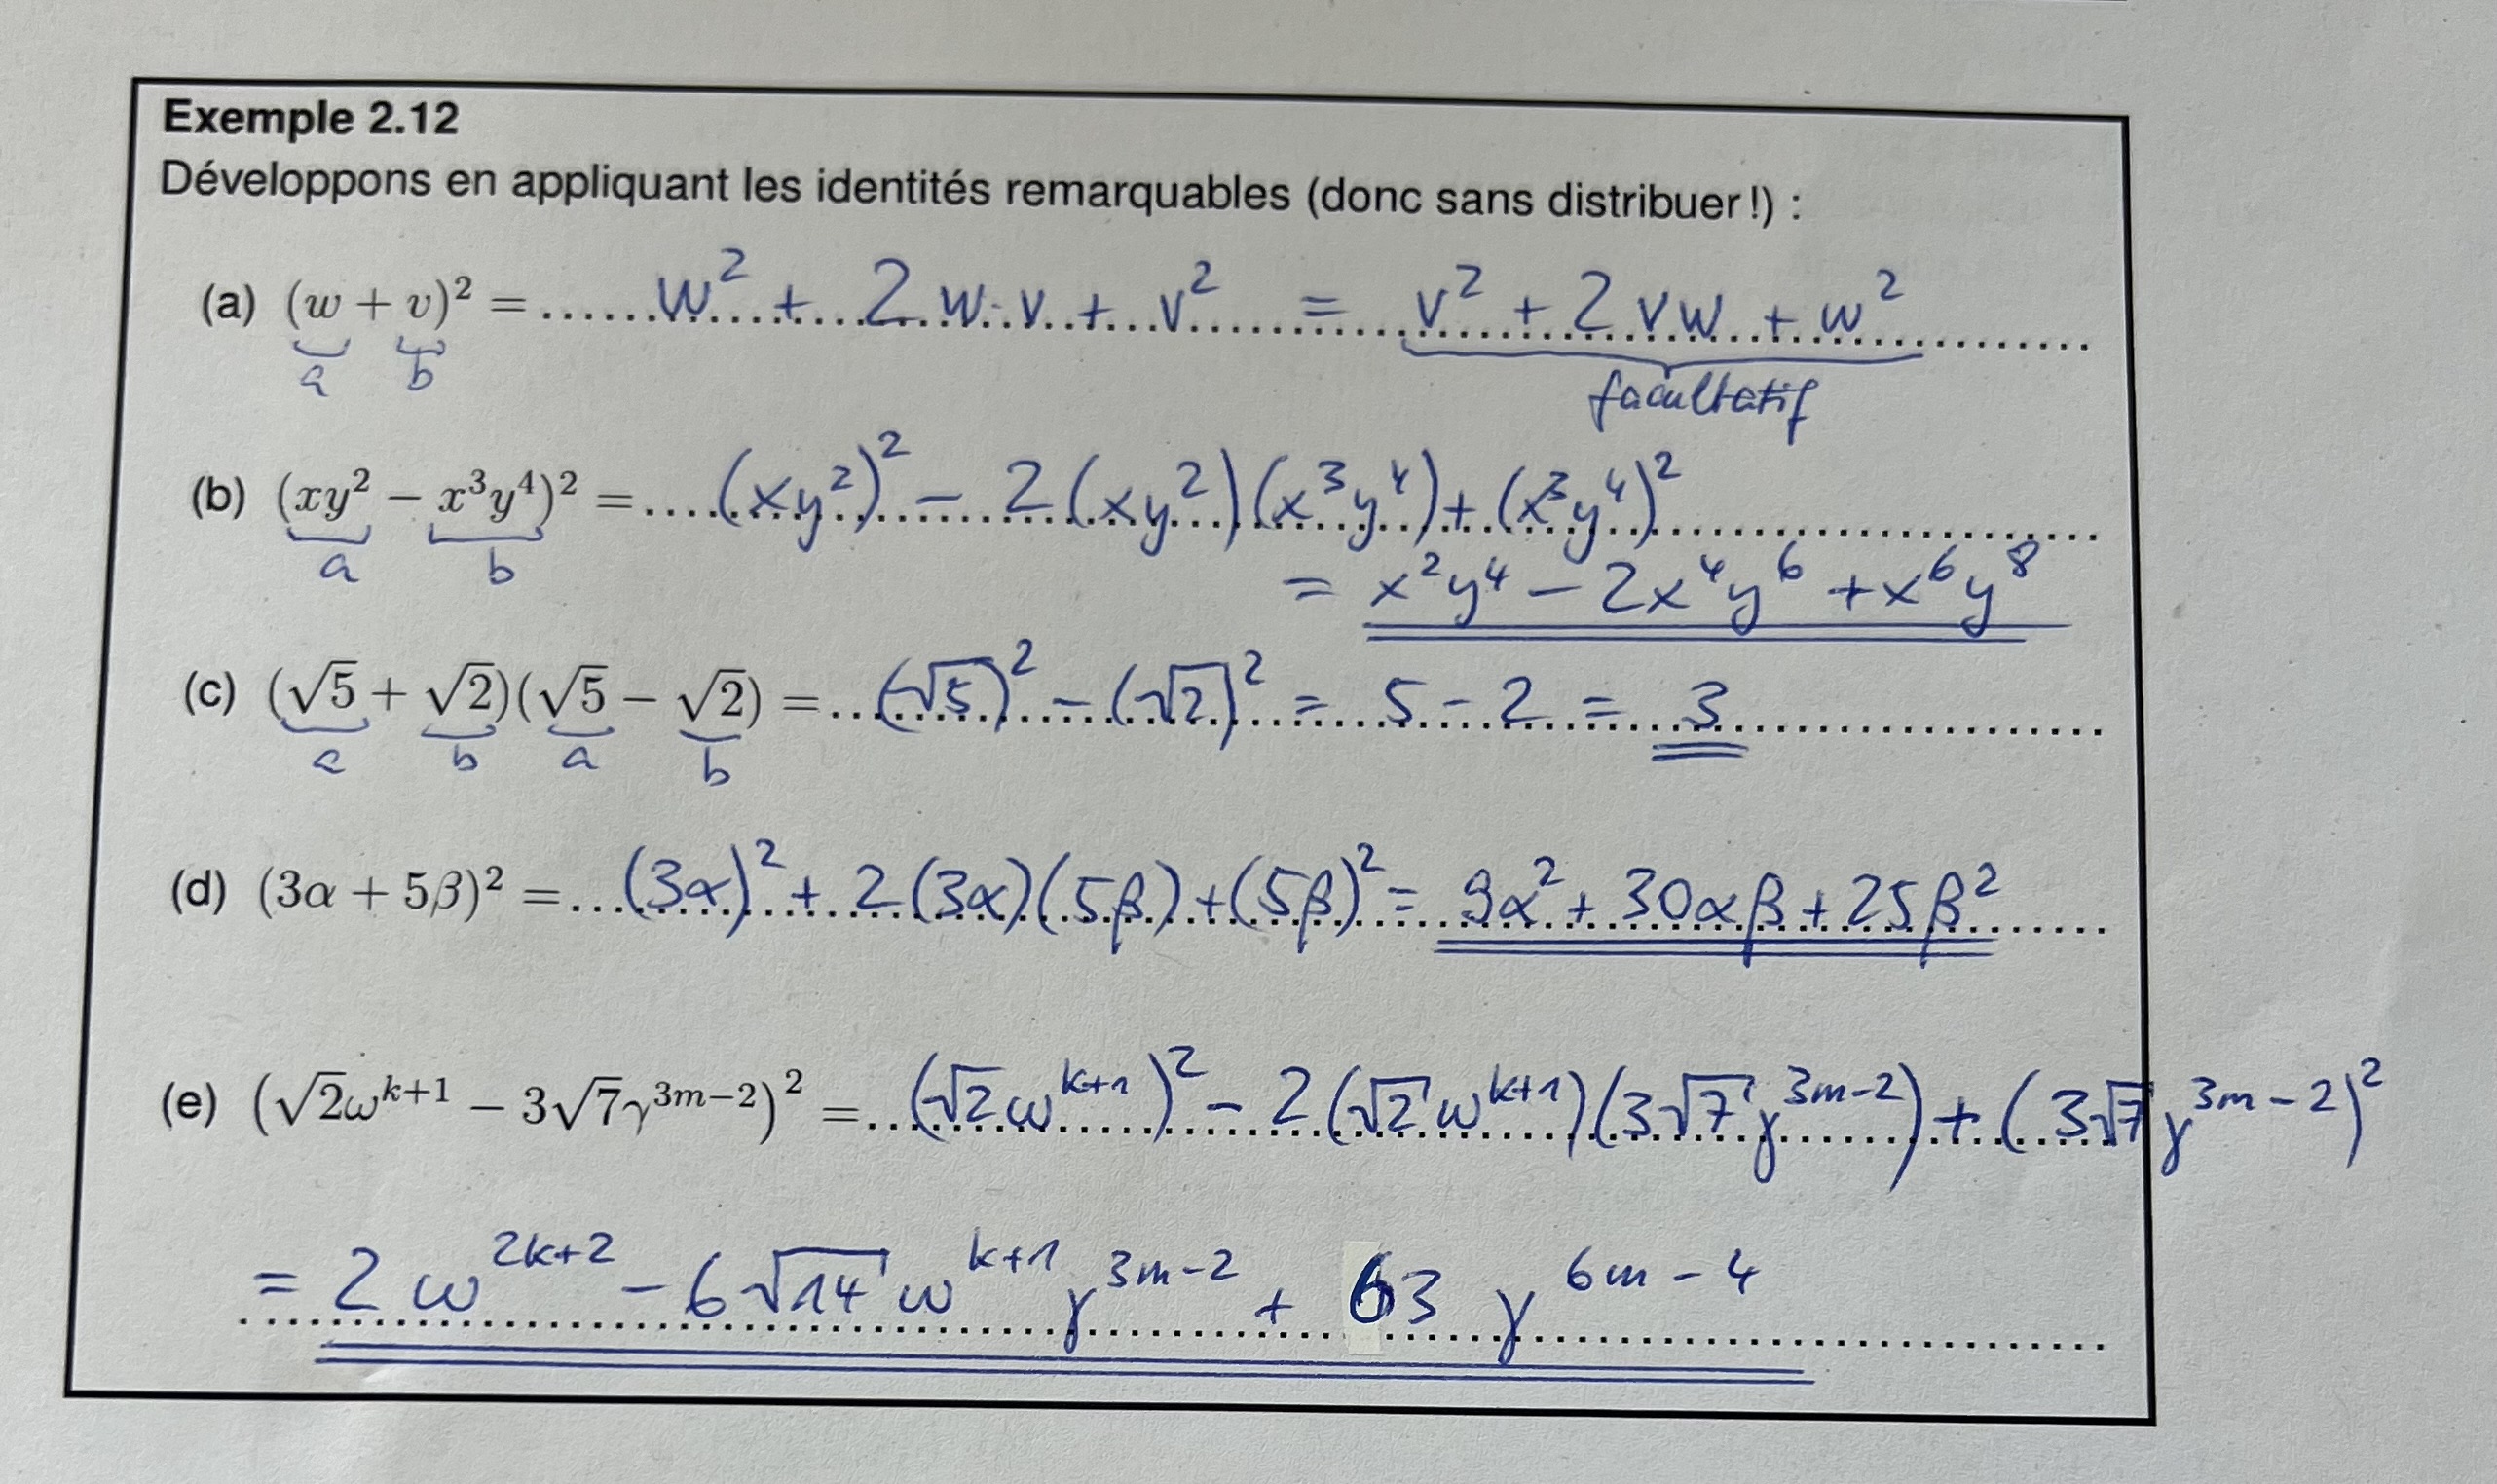 Exemple 2.12
Développons en appliquant les identités remarquables (donc sans distribuer !) :
(a) (w + v)² = w² + 2 w · v + v² = v² + 2 v w + w²
a b facultatif
(b) (xy² − x³y⁴)² = (xy²)² − 2 (xy²)(x³y⁴) + (x³y⁴)²
a b
= x²y⁴ − 2x⁴y⁶ + x⁶y⁸
(c) (√5 + √2)(√5 − √2) = (√5)² − (√2)² = 5 − 2 = 3
a b a b
(d) (3α + 5β)² = (3α)² + 2 (3α)(5β) + (5β)² = 9α² + 30αβ + 25β²
(e) (√2ω^{k+1} − 3√7γ^{3m−2})² = (√2 ω^{k+1})² − 2 (√2 ω^{k+1})(3√7 γ^{3m−2}) + (3√7 γ^{3m−2})²
= 2 ω^{2k+2} − 6√14 ω^{k+1} γ^{3m−2} + 63 γ^{6m−4}